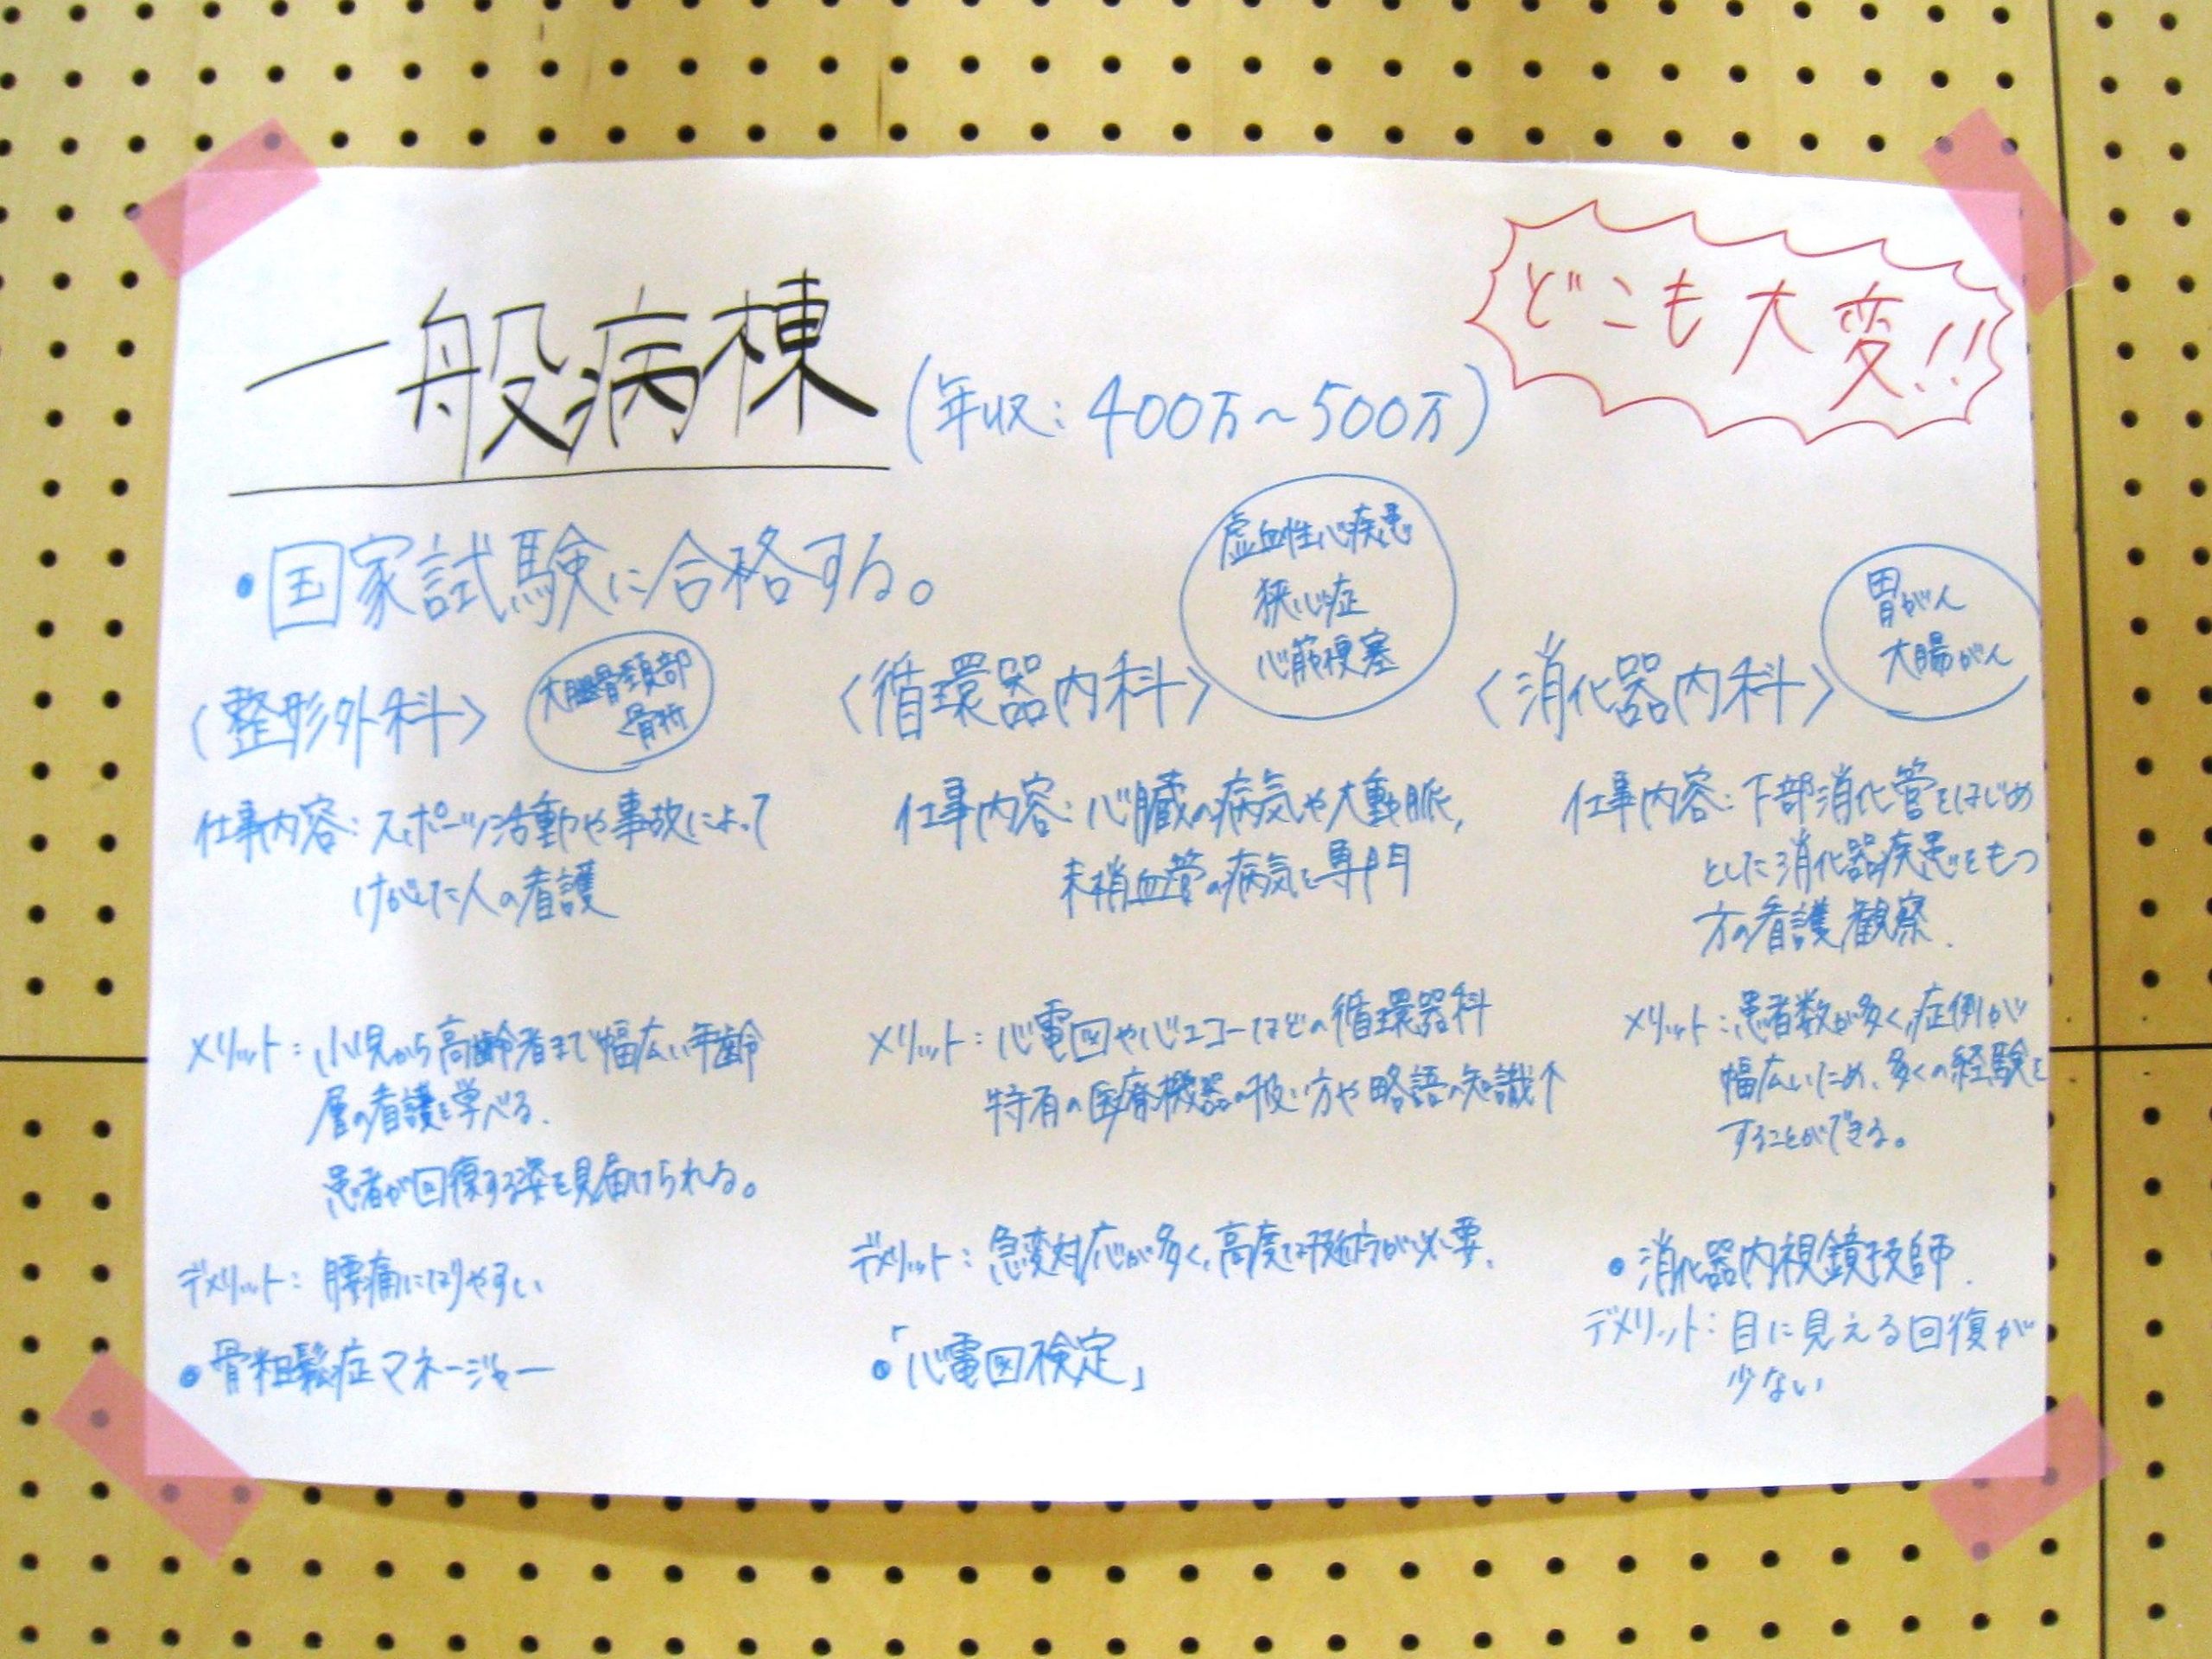 どこも大変!!
一般病棟
(年収:400万~500万)
・国家試験に合格する。
〈整形外科〉
大腿骨頸部
骨折
仕事内容:スポーツ活動や事故によって
けがした人の看護
メリット:小児から高齢者まで幅広い年齢
層の看護を学べる.
患者が回復する姿を見届けられる。
デメリット:腰痛になりやすい
・骨粗鬆症マネージャー
〈循環器内科〉
虚血性心疾患
狭心症
心筋梗塞
仕事内容:心臓の病気や大動脈,
末梢血管の病気を専門
メリット:心電図や心エコーなどの循環器科
特有の医療機器の扱い方や略語の知識↑
デメリット:急変対応が多く,高度な技術が必要.
・「心電図検定」
〈消化器内科〉
胃がん
大腸がん
仕事内容:下部消化管をはじめ
とした消化器疾患をもつ
方の看護,観察.
メリット:患者数が多く,症例が
幅広いため、多くの経験を
することができる。
・消化器内視鏡技師.
デメリット:目に見える回復が
少ない